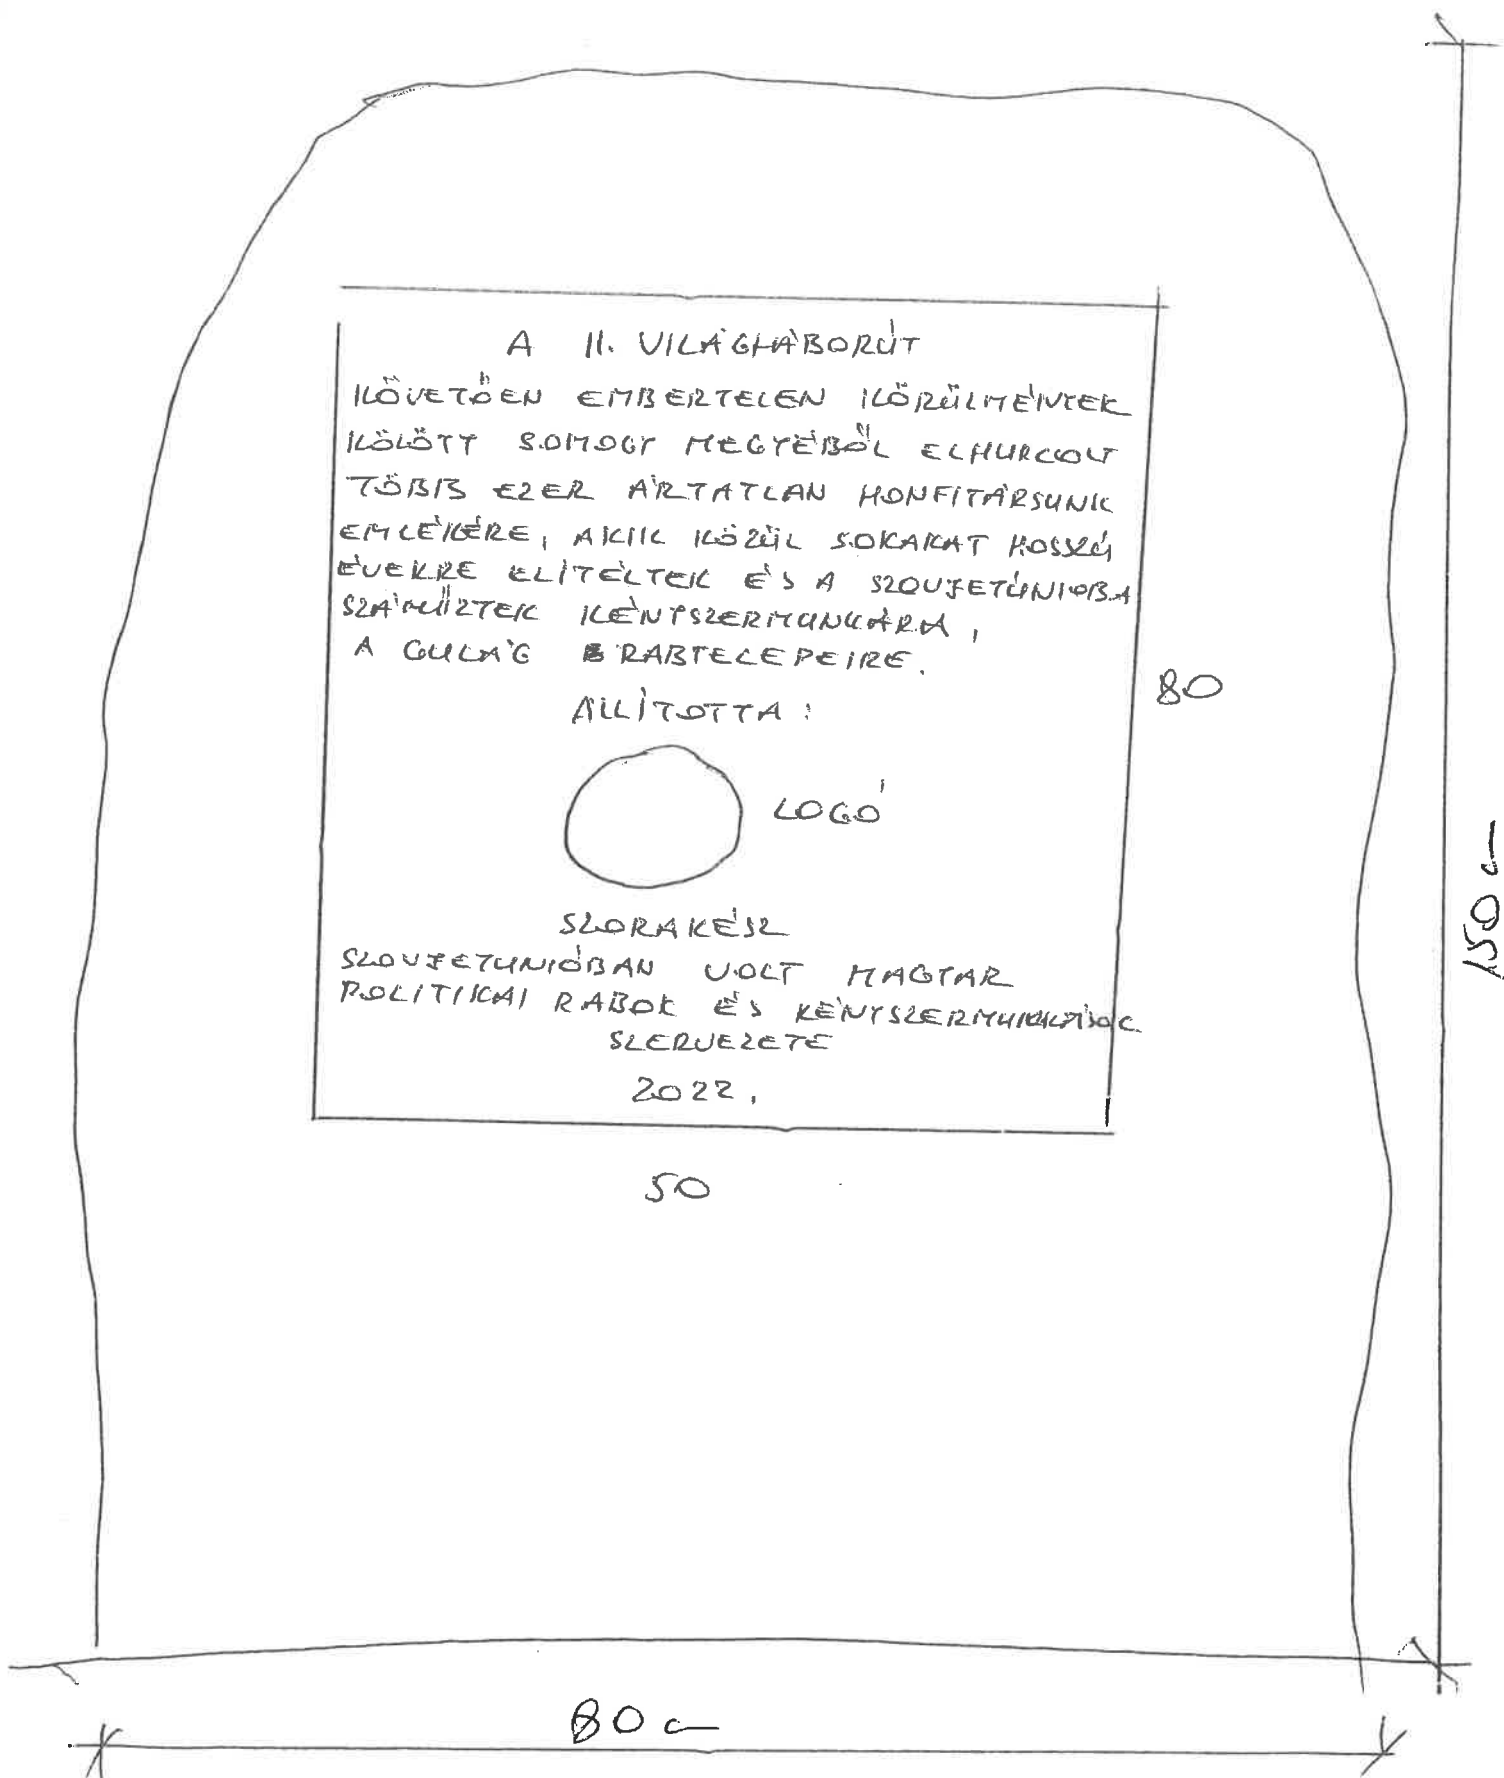 A II. VILÁGHÁBORÚT
KÖVETŐEN EMBERTELEN KÖRÜLMÉNYEK
KÖZÖTT SOMOGY MEGYÉBŐL ELHURCOLT
TÖBB EZER ÁRTATLAN HONFITÁRSUNK
EMLÉKÉRE, AKIK KÖZÜL SOKAKAT HOSSZÚ
ÉVEKRE ELÍTÉLTEK ÉS A SZOVJETÚNIOBA
SZÁMŰZTEK KÉNYSZERMUNKÁRA,
A GULÁG RABTELEPEIRE.
80
ÁLLÍTOTTA:
LOGÓ
150 c
SZORAKÉSZ
SZOVJETUNIÓBAN VOLT MAGYAR
POLITIKAI RABOK ÉS KÉNYSZERMUNKÁSOK
SZERVEZETE
2022.
50
80 c